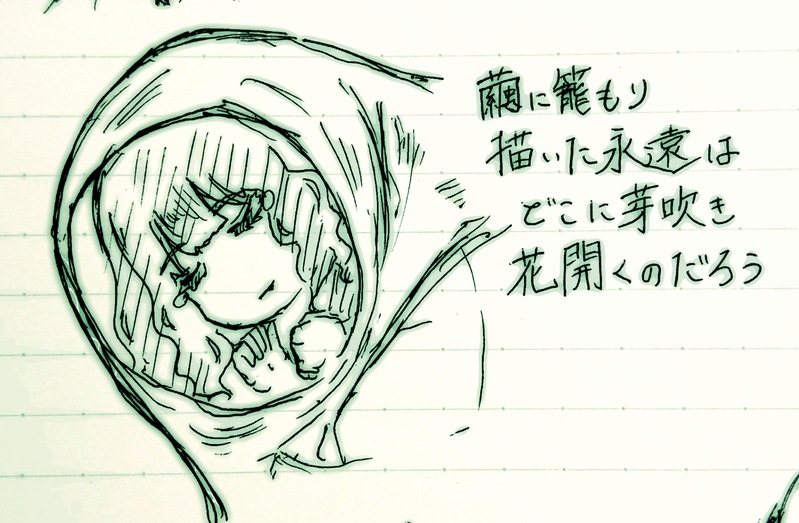 繭に籠もり
描いた永遠は
どこに芽吹き
花開くのだろう